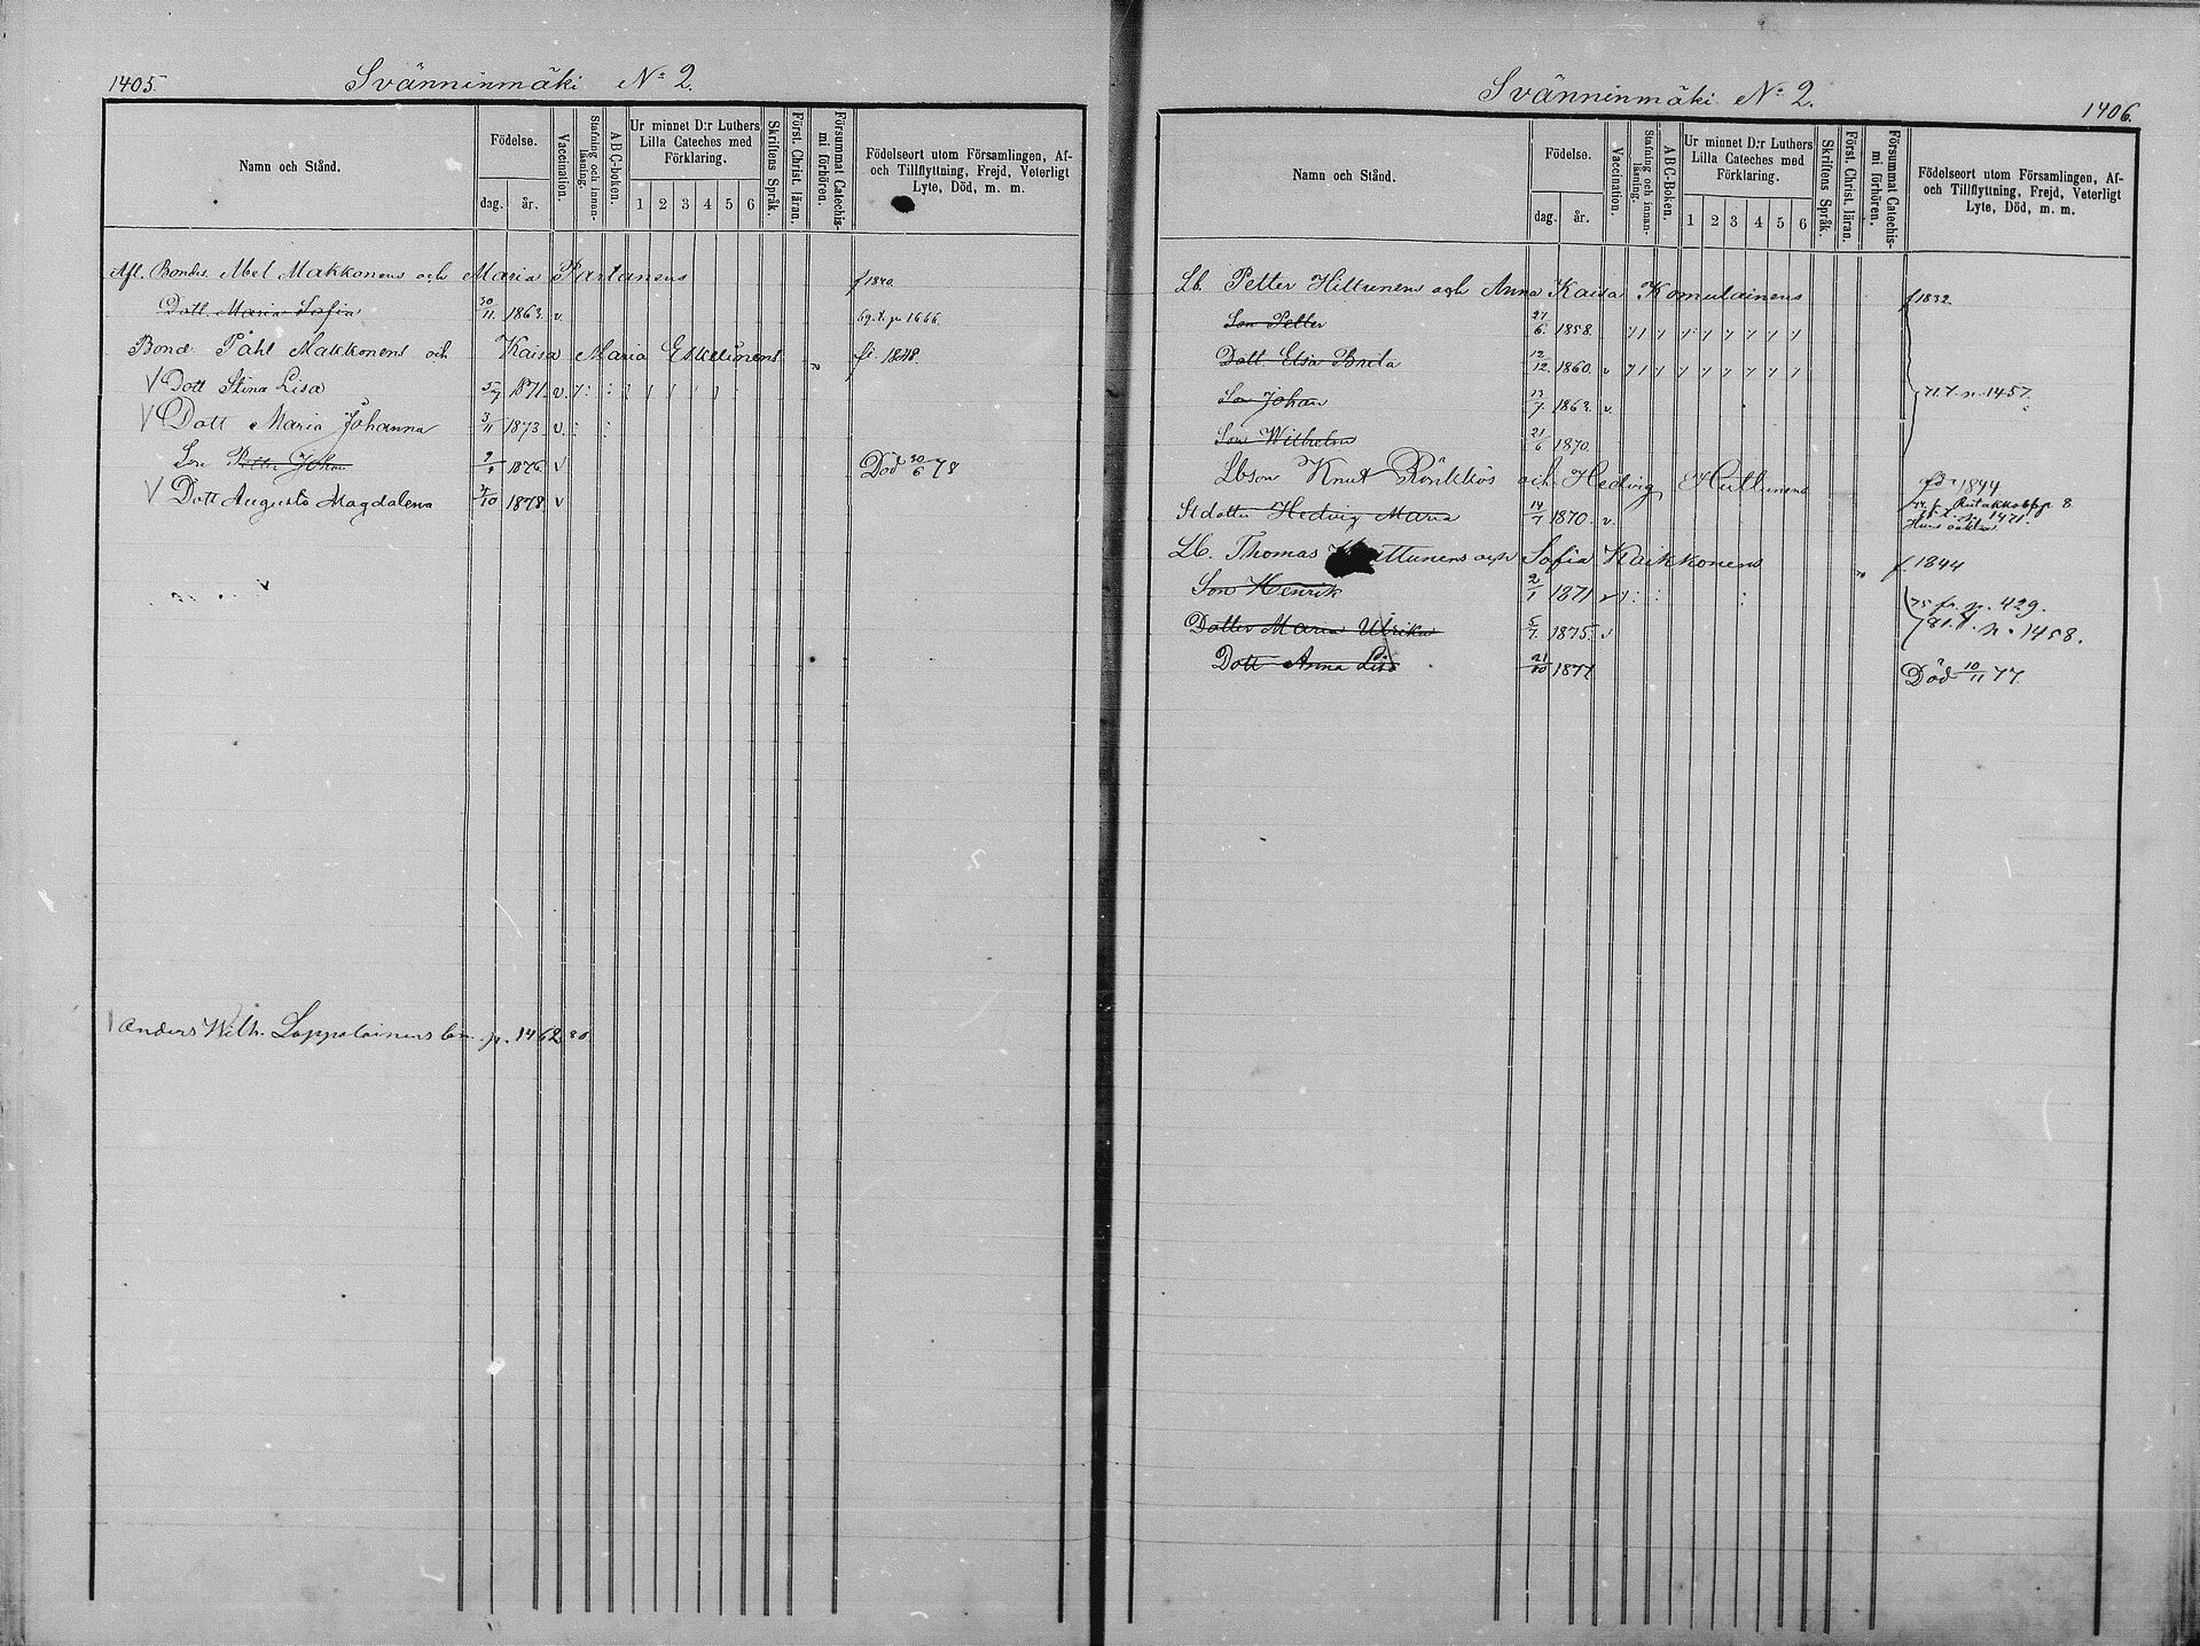 1405.
Svänninmäki No 2.
Namn och Stånd.
Födelse.
dag. år.
Vaccination.
Stafning och innanläsning.
ABC-boken.
Ur minnet D:r Luthers Lilla Cateches med Förklaring.
1 2 3 4 5 6
Skriftens Språk.
Först. Christ. läran.
Försummat Catechismi förhören.
Födelseort utom Församlingen, Af- och Tillflyttning, Frejd, Veterligt Lyte, Död, m. m.
Afl. Bondes Abel Makkonens och Maria Partanens f 1840.
Dott. Maria Sofia 30/11. 1863. v. p 1666
Bond. Påhl Makkonens och Kaisa Maria Eskelinens fr. 1848.
V Dott Stina Lisa 5/7 1871. v.
V Dott Maria Johanna 3/11 1873 v.
Son Petter Johan 1876. v Död 30/6 78
V Dott Augusta Magdalena 1878 v
Anders Wilh. Lappalainens p. 1462 80
Svänninmäki No 2.
1406.
Namn och Stånd.
Födelse.
dag. år.
Vaccination.
Stafning och innanläsning.
ABC-Boken.
Ur minnet D:r Luthers Lilla Cateches med Förklaring.
1 2 3 4 5 6
Skriftens Språk.
Först. Christ. läran.
Försummat Catechismi förhören.
Födelseort utom Församlingen, Af- och Tillflyttning, Frejd, Veterligt Lyte, Död, m. m.
Lb. Petter Hiltunens och Anna Kaisa Komulainens f 1832.
Son Petter 27/6. 1858.
Dott. Elsa Brita 12/12. 1860. v
71. t. p. 1457.
Son Johan 13/7. 1863. v.
Son Wilhelm 21/6 1870.
Lbson Knut Rönkkös och Hedvig Huttunens 1844
Stdotter Hedvig Maria 14/7 1870. v. 1471.
Lb. Thomas Huttunens och Sofia Kaikkonens f. 1844
Son Henrik 2/1 1871 v
75 fr. p. 429.
Dotter Maria Ulrika 5/7. 1875. v
81. t. p. 1458.
Dott Anna Lisa 21/10 1877 Död 10/11 77.